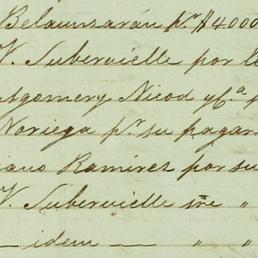 Belaunzarán pr $4000
V. Subervielle por le
tgomery Nicod y Ca. p
Noriega pr su pagar
iano Ramirez por su
V. Subervielle sre "
— idem — " "